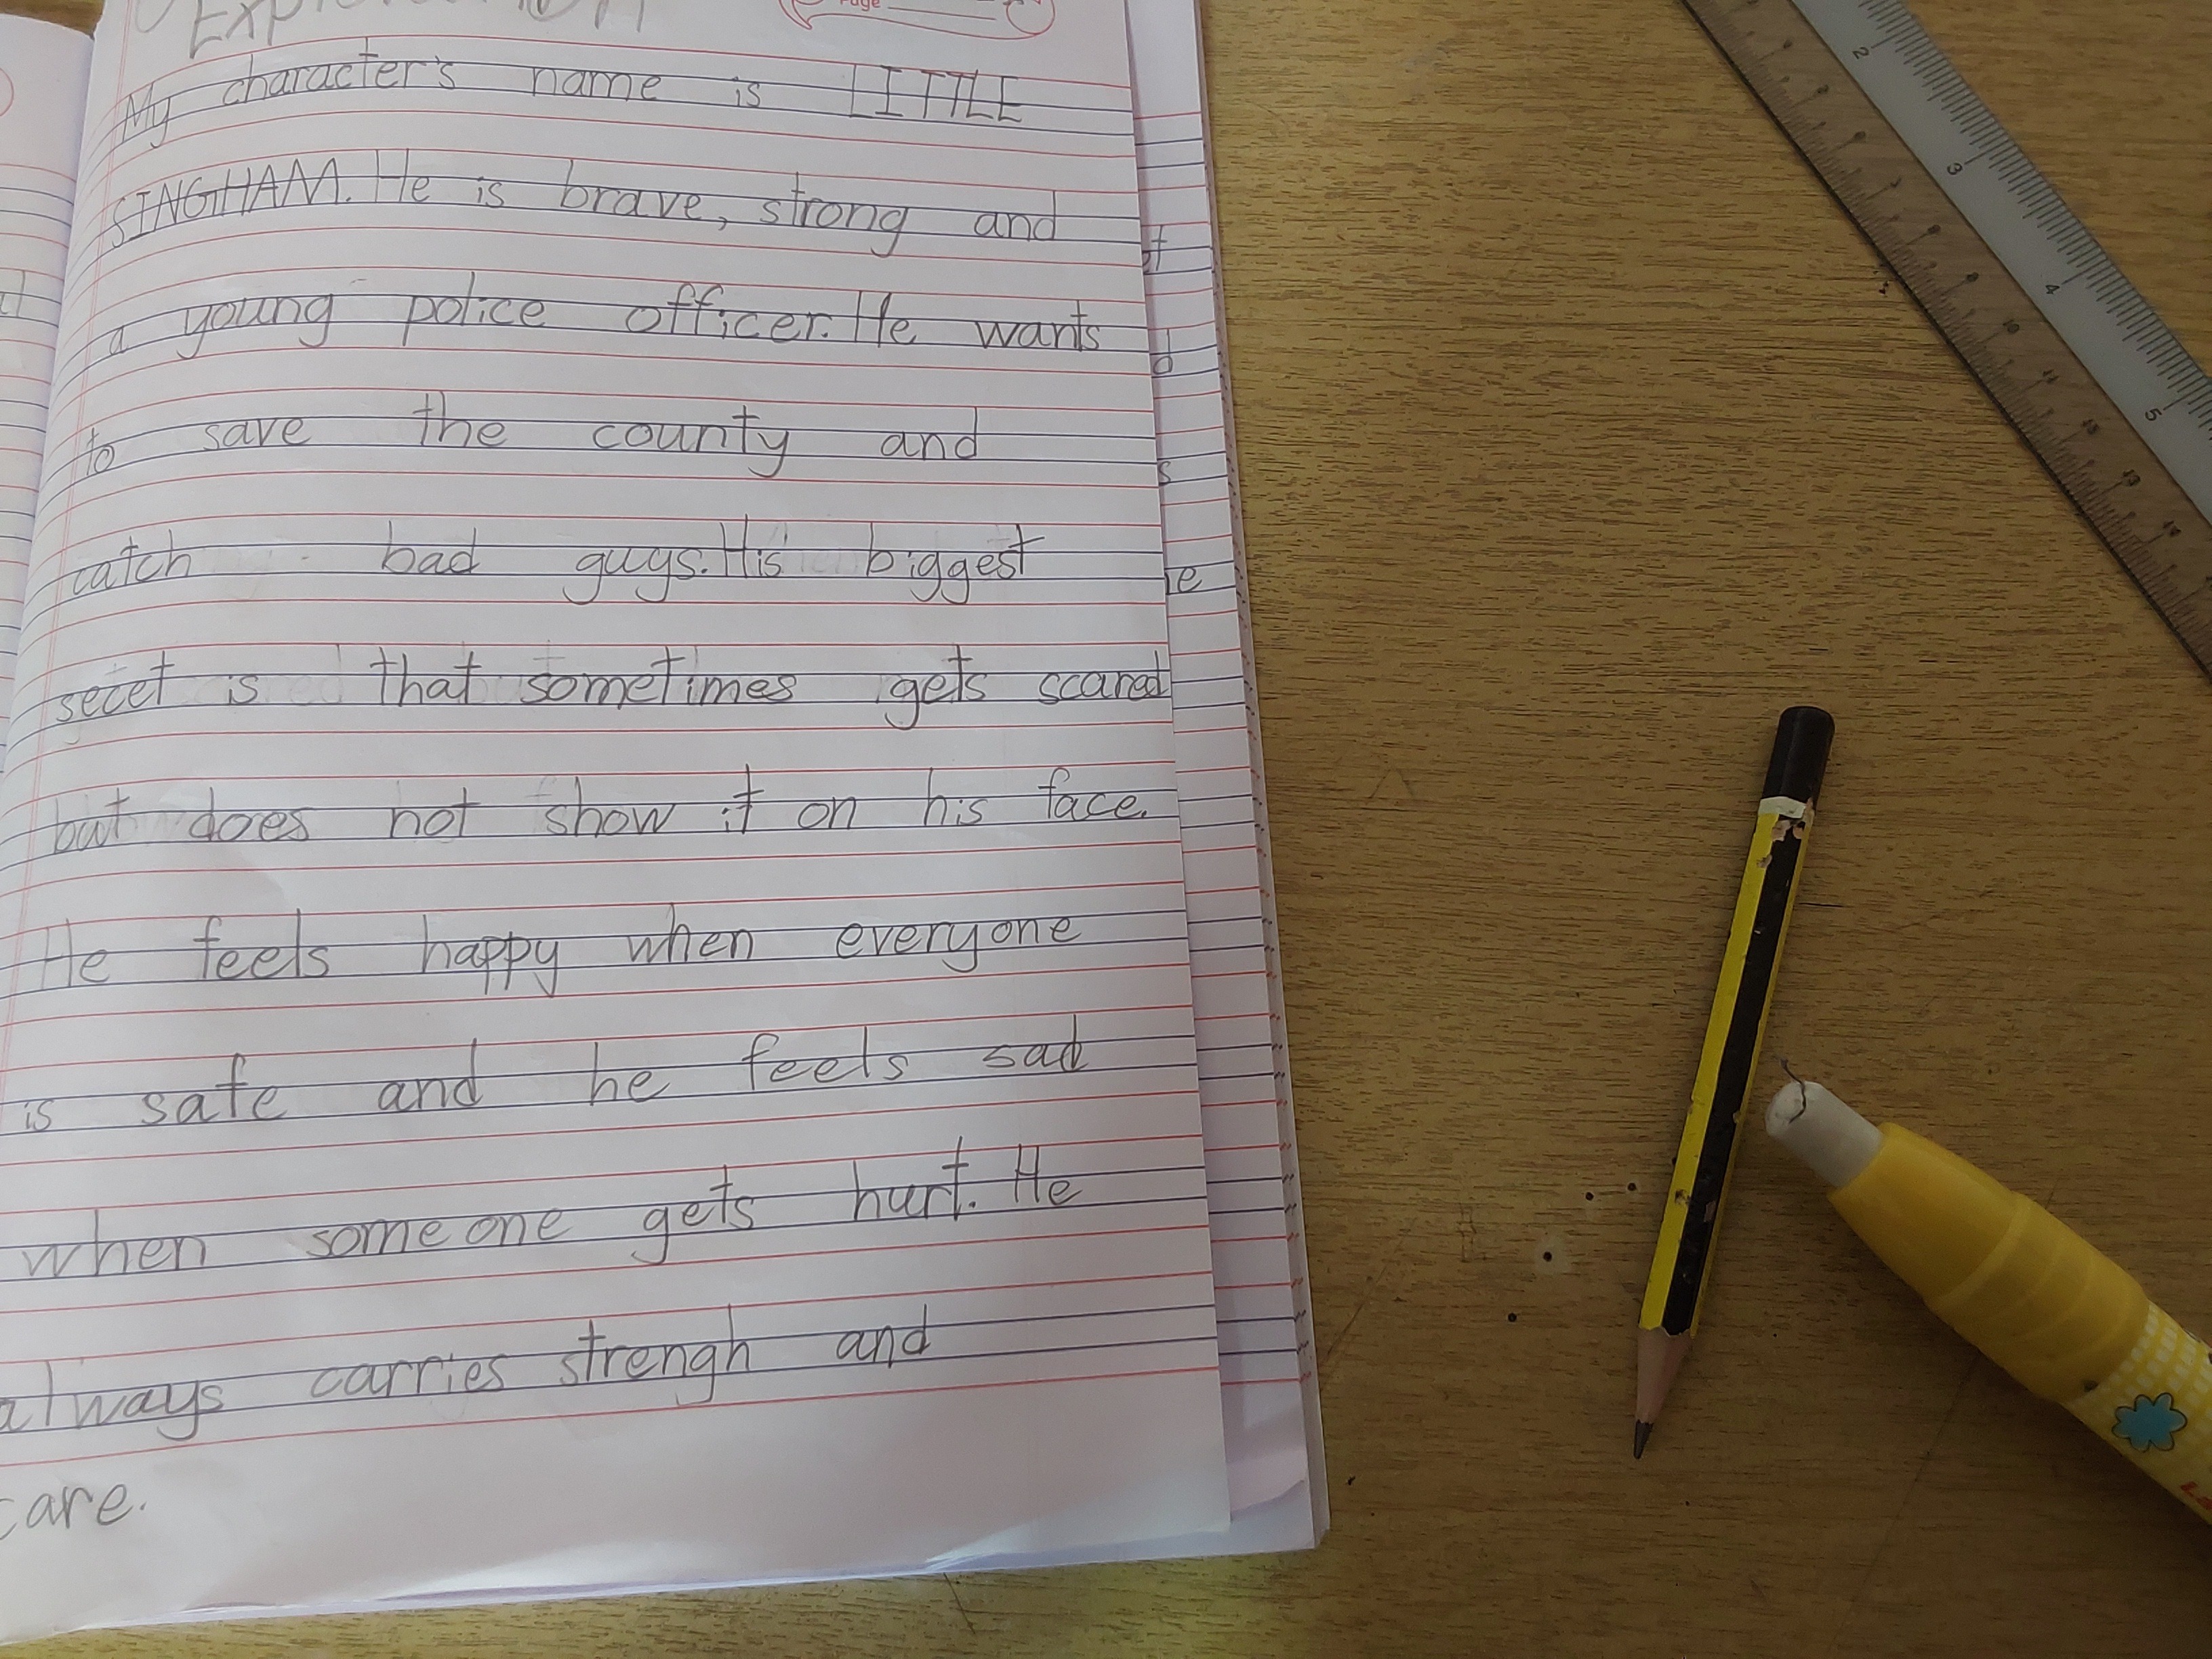 Page
My character's name is LITTLE
SINGHAM. He is brave, strong and
a young police officer. He wants
to save the county and
catch bad guys. His biggest
secet is that sometimes gets scared
but does not show it on his face.
He feels happy when everyone
is safe and he feels sad
when someone gets hurt. He
always carries strengh and
care.
2
3
4
5